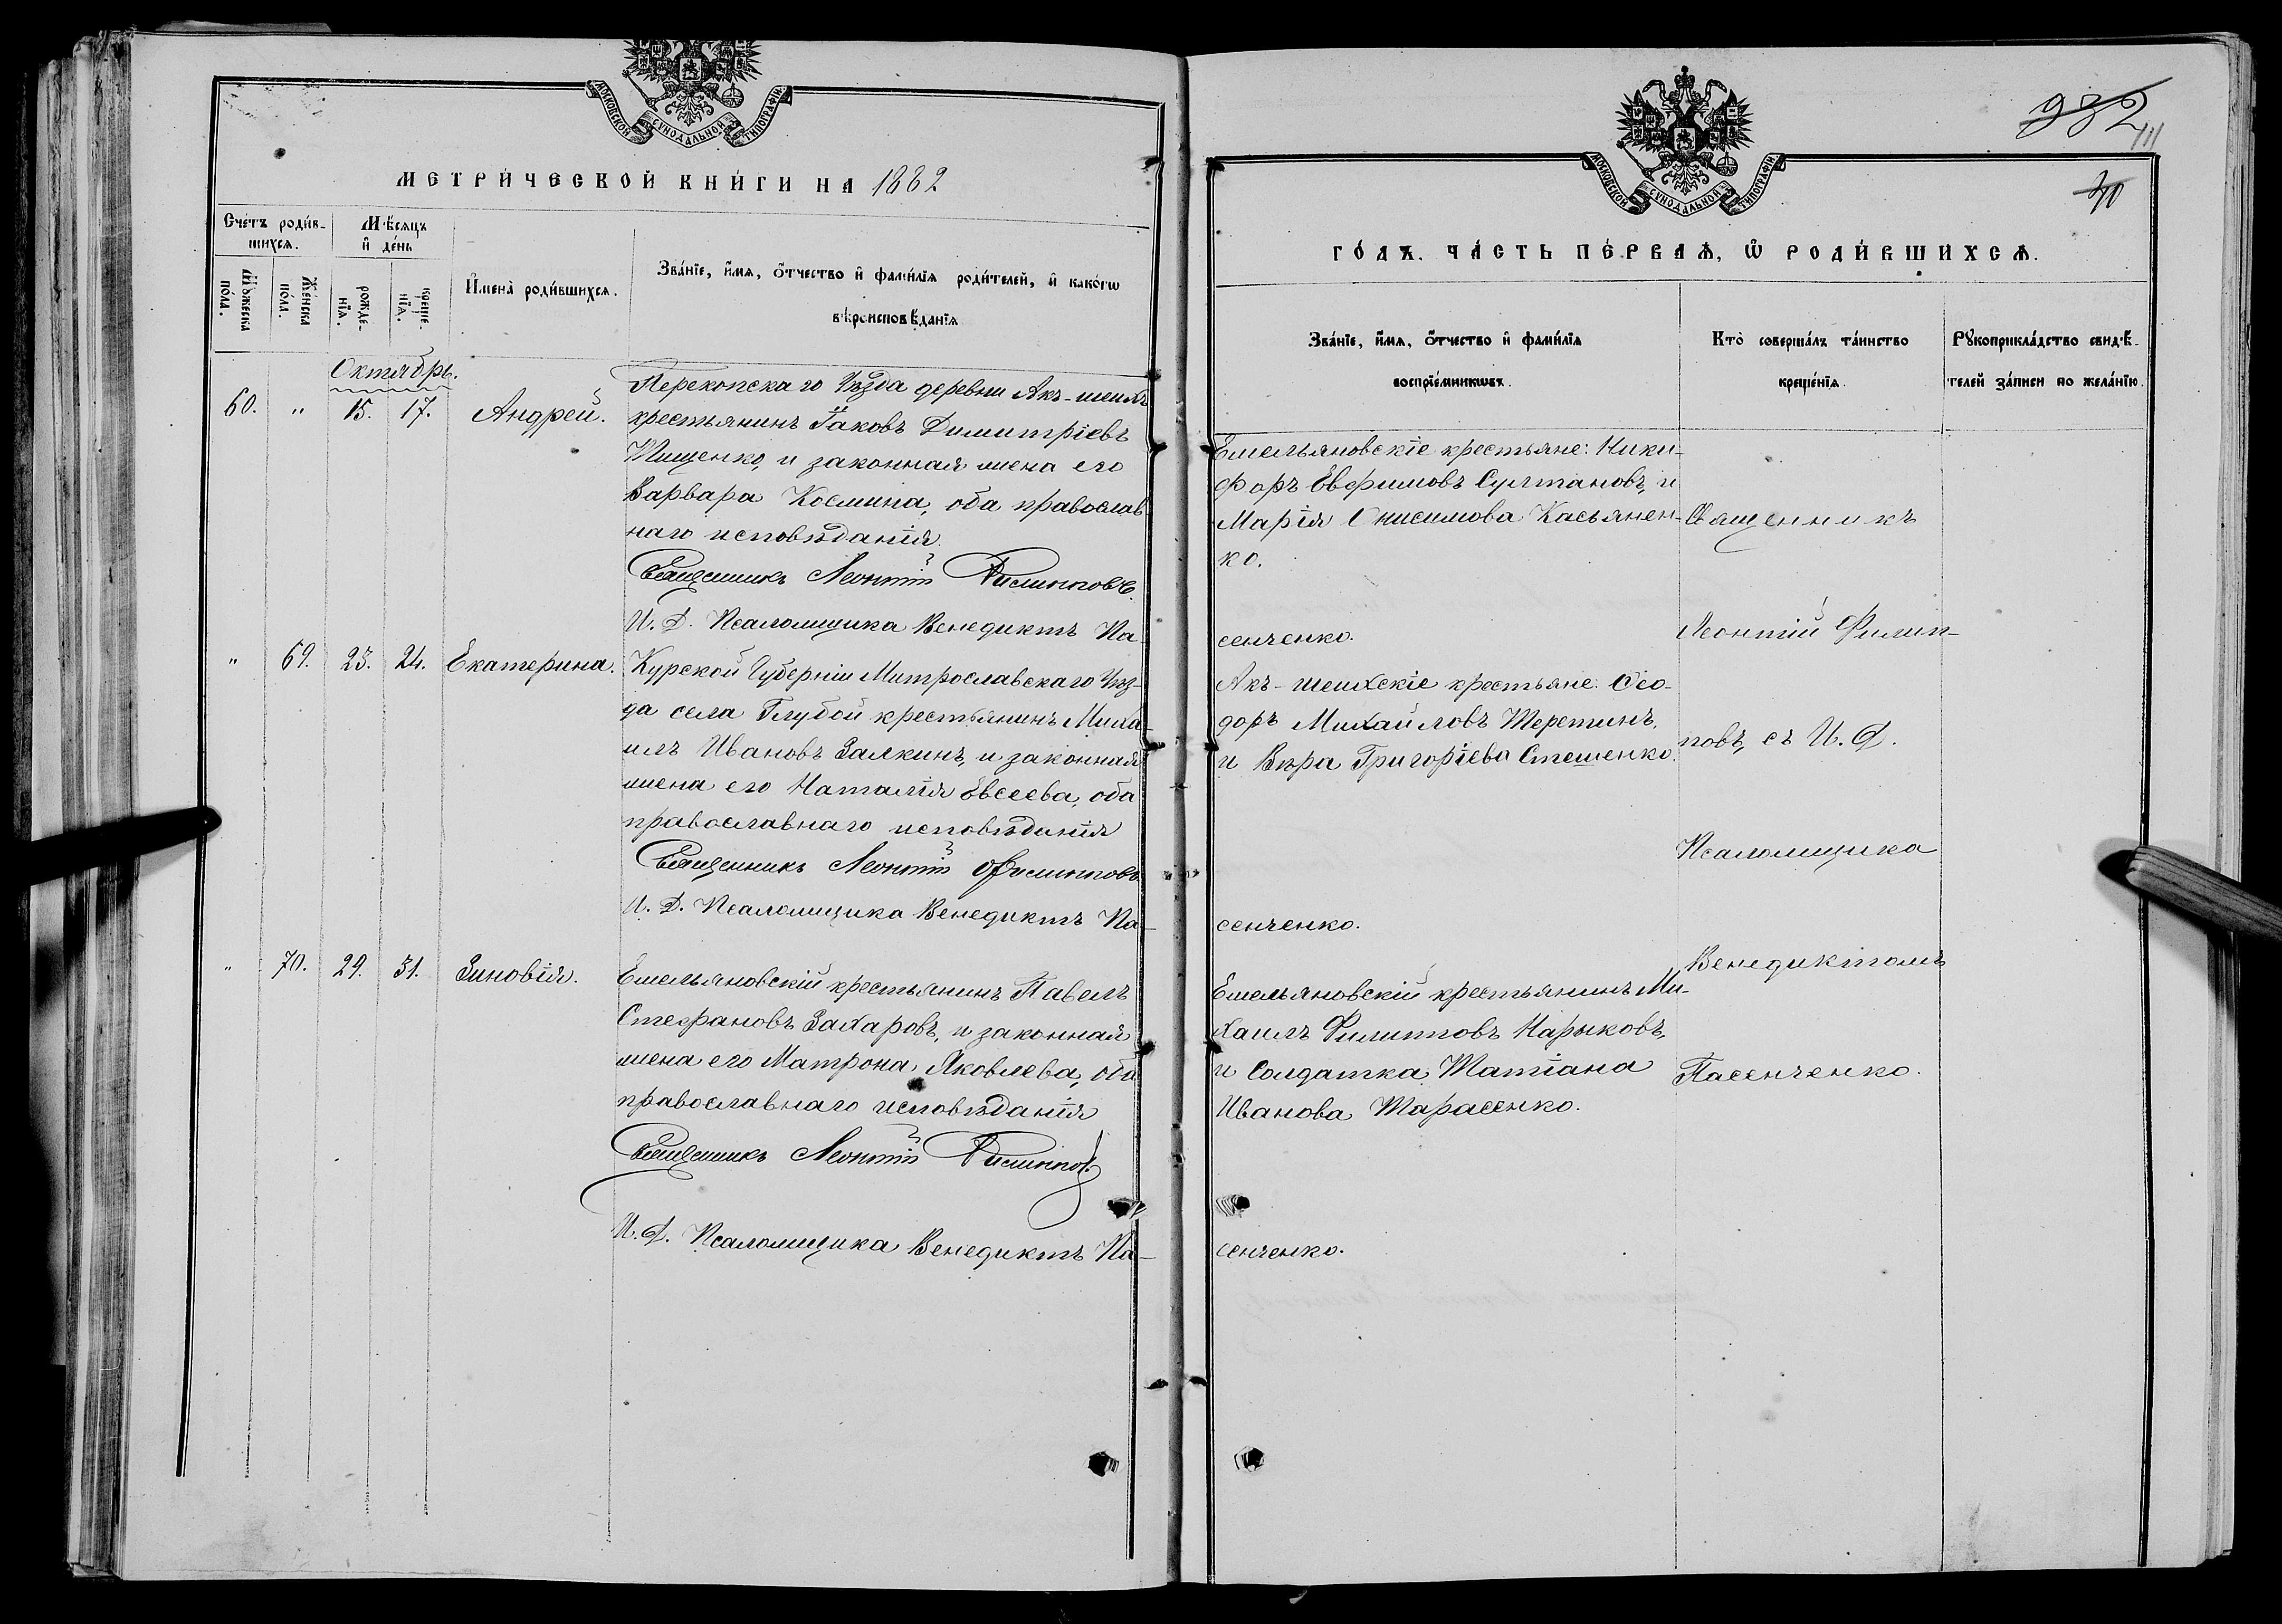 МОСКОВСКОЙ СУНОДАЛЬНОЙ ТИПОГРАФІИ
МЕТРИ́ЧЕСКОЙ КНИ́ГИ НА 1882
Сче́тъ роди́в-
шихсѧ.
Мѣ́сѧцъ
и҆ де́нь
Мꙋ́жеска
по́ла.
Же́нска
по́ла.
рожде-
нїѧ.
креще-
нїѧ.
И҆мена̀ роди́вшихсѧ.
Зва́нїе, и҆́мѧ, ѻ҆́тчество и҆ фами́лїѧ роди́телей, и҆ како́гѡ
вѣроисповѣ́данїѧ
Октябрь.
60. " 15. 17. Андрей.
Перекопскаго Уѣзда деревни Акъ-шеихъ
крестьянинъ Іаковъ Димитріевъ
Тищенко, и законная жена его
Варвара Космина, оба православ
наго исповѣданія.
Священникъ Леонтій Филипповъ.
И. Д. Псаломщика Венедиктъ Па-
" 69. 23. 24. Екатерина.
Курской Губерніи Митрославскаго Уѣз-
да села Глубой крестьянинъ Миха-
илъ Ивановъ Залкинъ, и законная
жена его Наталія Евсеева, оба
православнаго исповѣданія
Священникъ Леонтій Филипповъ
И. Д. Псаломщика Венедиктъ Па-
" 70. 29. 31. Зиновія.
Емельяновскій крестьянинъ Павелъ
Стефановъ Захаровъ, и законная
жена его Матрона Яковлева, оба
православнаго исповѣданія
Священникъ Леонтій Филиппов.
И. Д. Псаломщика Венедиктъ Па-
МОСКОВСКОЙ СУНОДАЛЬНОЙ ТИПОГРАФІИ
982
111
ГО́ДЪ. ЧА́СТЬ ПЕ́РВАѦ, Ѽ РОДИ́ВШИХСѦ.
Зва́нїе, и҆́мѧ, ѻ҆́тчество и҆ фами́лїѧ
воспрїе́мникѡвъ.
Кто̀ соверша́лъ та́инство
креще́нїѧ.
Рꙋкоприкла́дство свидѣ́-
телей за́писи по жела́нїю.
Емельяновскіе крестьяне: Ники-
форъ Евфимовъ Султановъ, и
Марія Онисимова Касьянен-
ко.
сенченко.
Акъ-шеихскіе крестьяне: Ѳео-
доръ Михайловъ Теретинъ,
и Вѣра Григоріева Стешенко.
сенченко.
Емельяновскій крестьянинъ Ми-
хаилъ Филипповъ Нарыковъ,
и Солдатка Татіана
Иванова Тарасенко.
сенченко.
Священникъ
Леонтій Филип-
повъ, съ И. Д.
Псаломщика
Венедиктомъ
Пасенченко.